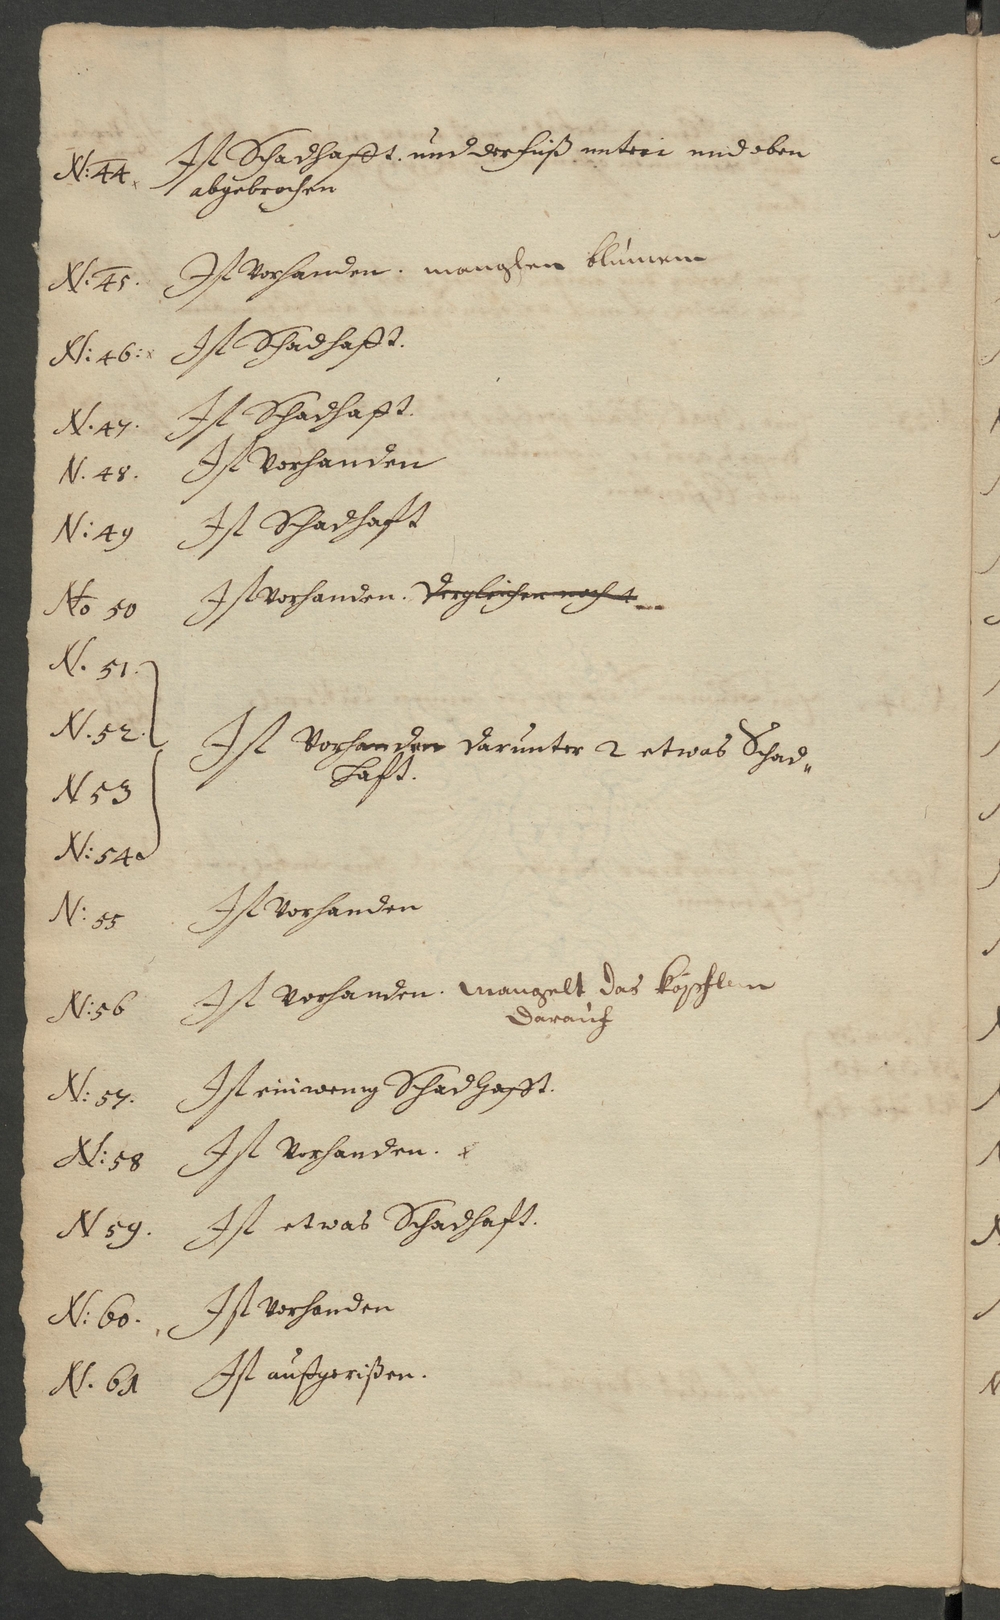 N: 44. Ist Schadhafft. und der fuß unten und oben
abgebrochen
N: 45. Ist Vorhanden. manglen blumen
N: 46: Ist Schadhafft.
N. 47. Ist Schadhafft.
N. 48. Ist Vorhanden
N: 49 Ist Schadhaft
No 50 Ist Vorhanden. Dergleichen noch 4
N. 51.
N. 52. Ist Vorhanden darunter 2 etwas Schad„
haft.
N 53
N: 54
N: 55 Ist Vorhanden
N: 56 Ist Vorhanden. mangelt das köpflein
darauf
N: 57. Ist ein wenig Schadhafft.
N: 58 Ist Vorhanden.
N 59. Ist etwas Schadhaft.
N: 60. Ist Vorhanden
N. 61 Ist außgerißen.